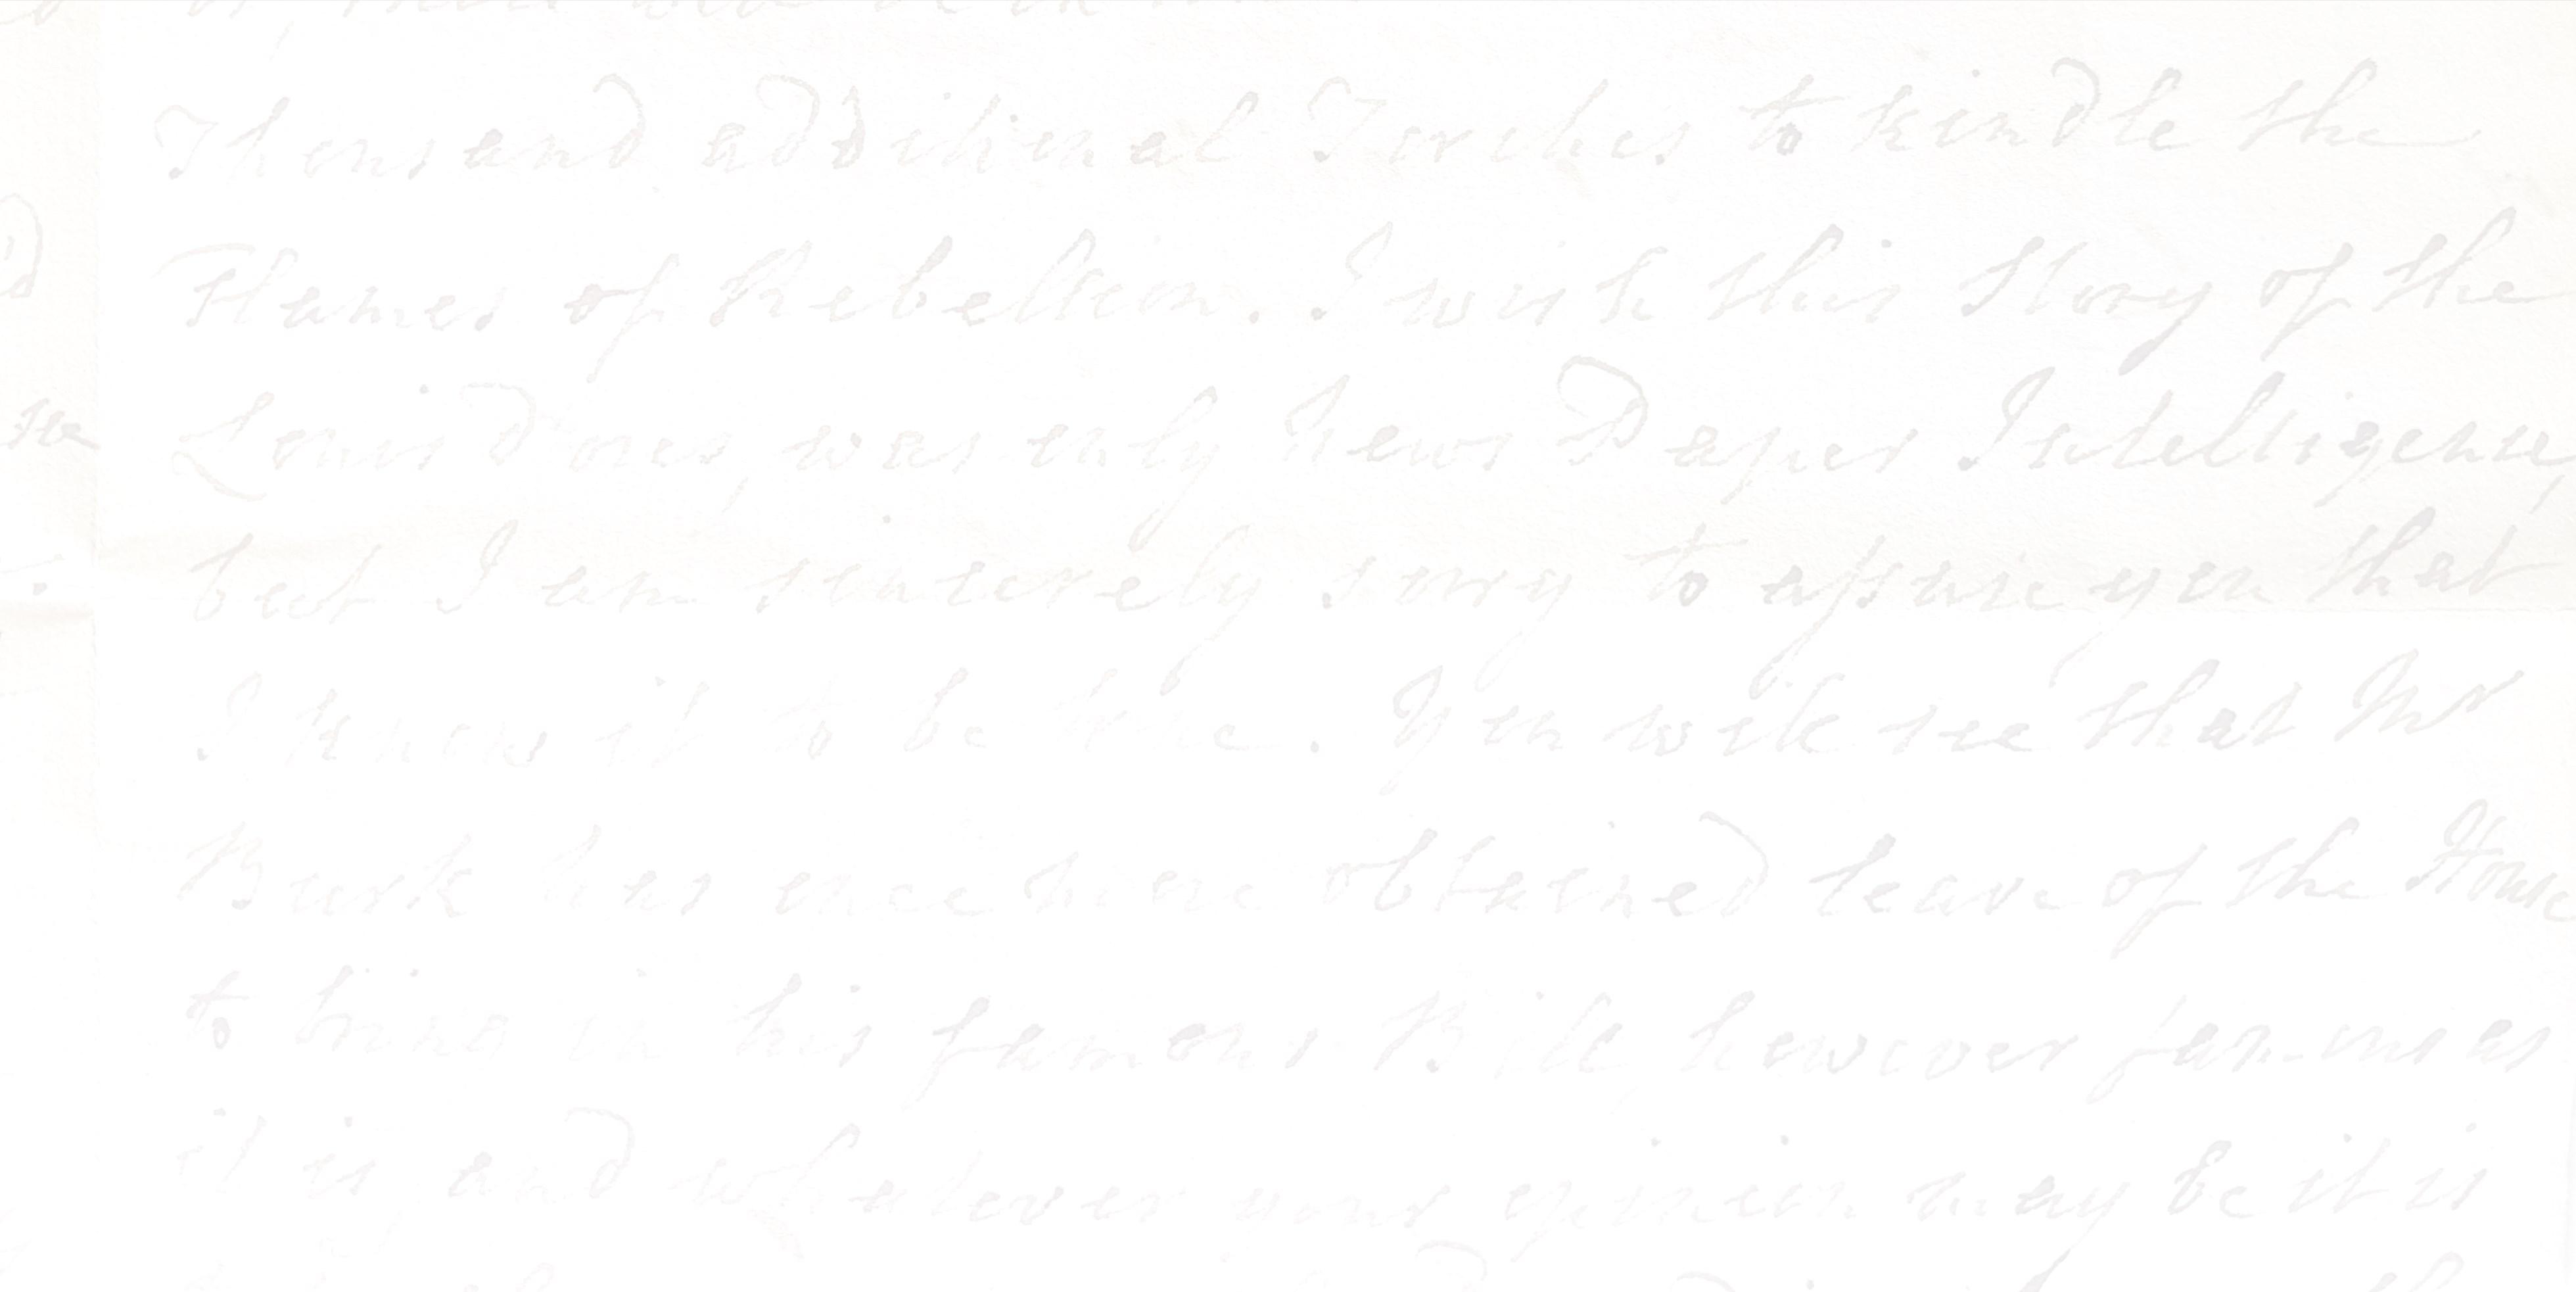 Thousand additional Torches to kindle the
Flames of Rebellion. I wish this Story of the
Louis d'ores, was only News Paper Intelligence,
but I am sincerely sorry to assure you that
I know it to be true. You will see that Mr
Burk has once more obtained leave of the House
to bring in his famous Bill, however famous as
it is, and whatever your opinion may be it is